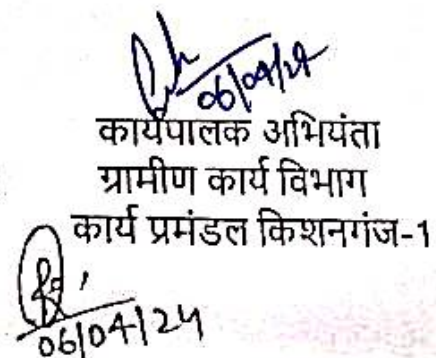 06/04/24
कार्यपालक अभियंता
ग्रामीण कार्य विभाग
कार्य प्रमंडल किशनगंज-1
06/04/24